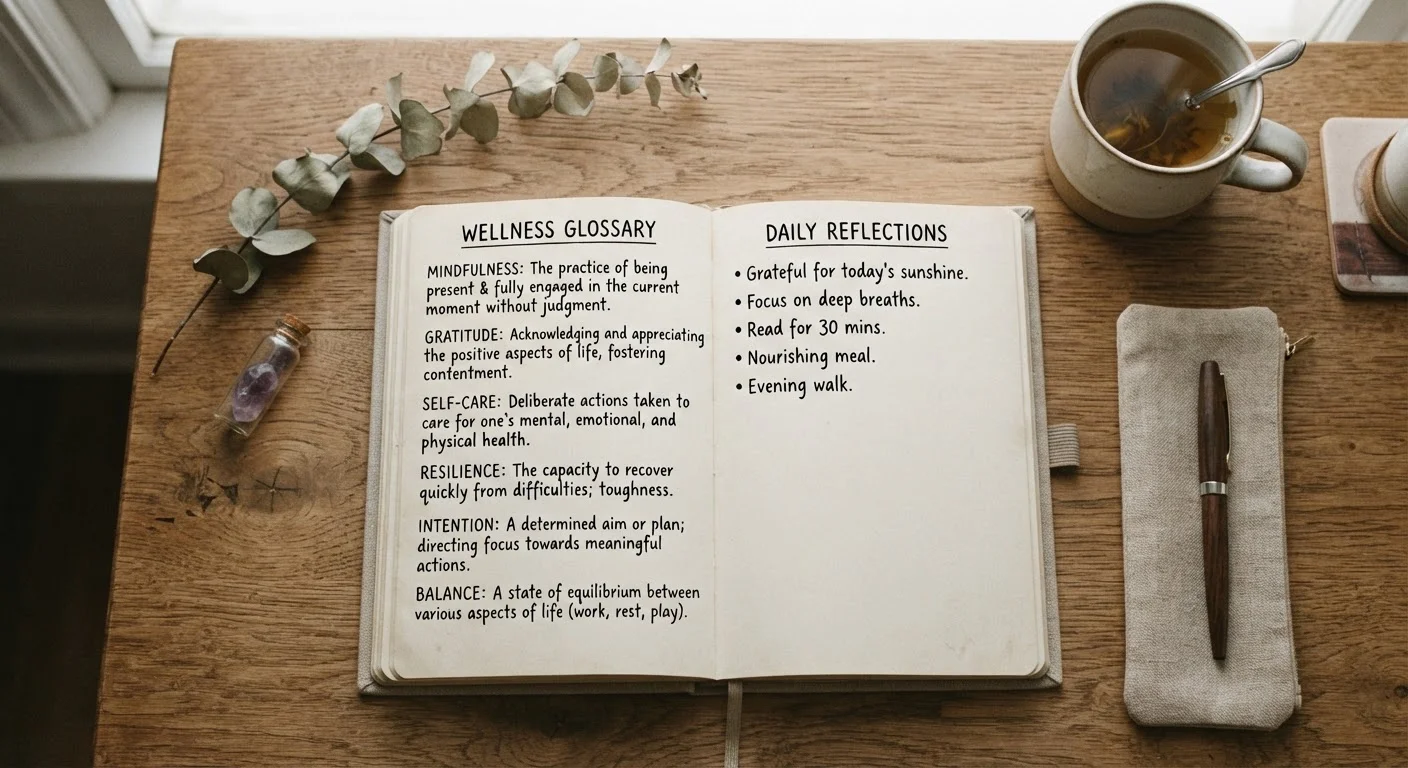 WELLNESS GLOSSARY
MINDFULNESS: The practice of being
present & fully engaged in the current
moment without judgment.
GRATITUDE: Acknowledging and appreciating
the positive aspects of life, fostering
contentment.
SELF-CARE: Deliberate actions taken to
care for one's mental, emotional, and
physical health.
RESILIENCE: The capacity to recover
quickly from difficulties; toughness.
INTENTION: A determined aim or plan;
directing focus towards meaningful
actions.
BALANCE: A state of equilibrium between
various aspects of life (work, rest, play).
DAILY REFLECTIONS
• Grateful for today's sunshine.
• Focus on deep breaths.
• Read for 30 mins.
• Nourishing meal.
• Evening walk.